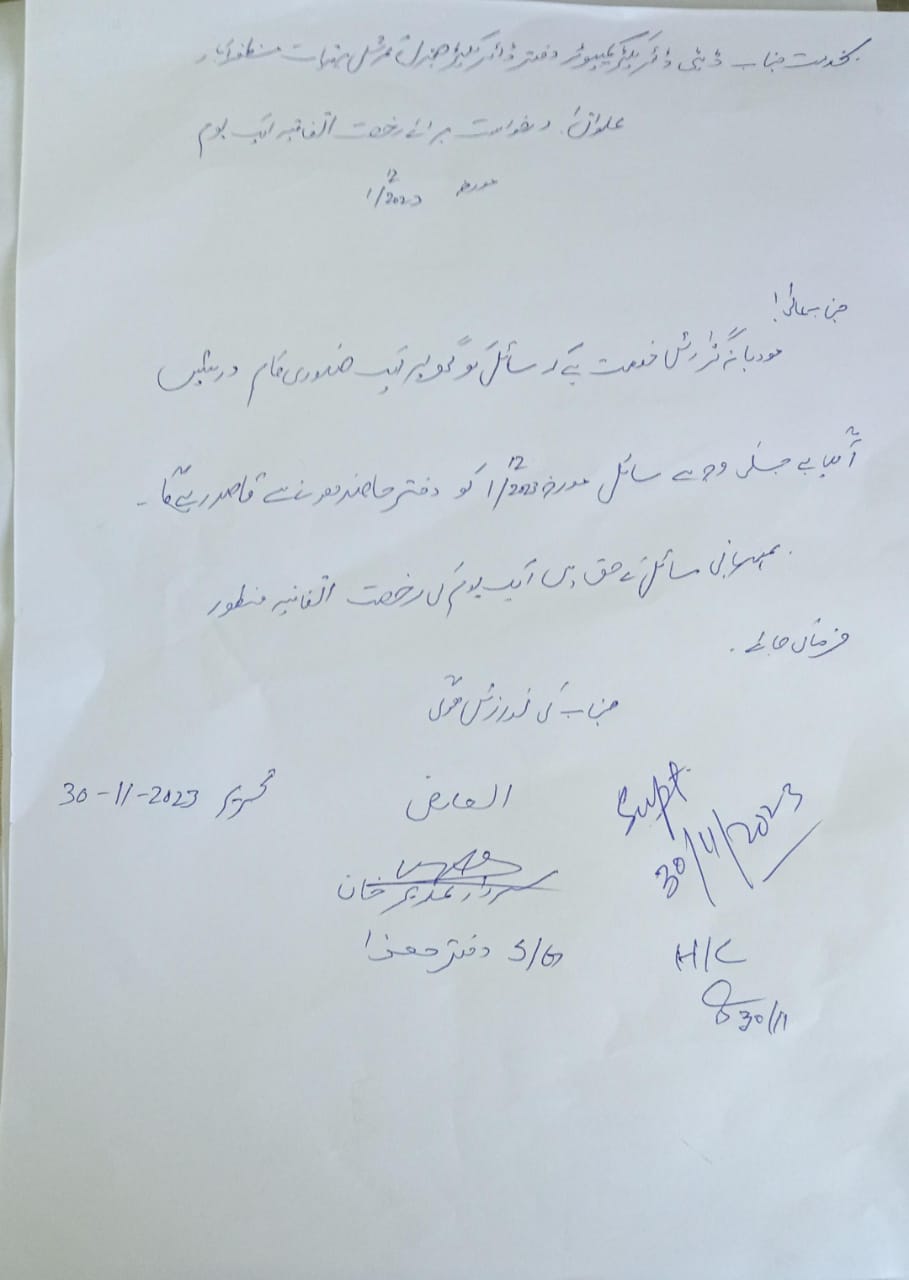 بخدمت جناب ڈپٹی ڈائریکٹر کمپیوٹر دفتر ڈائریکٹر جنرل مظفرآباد
عنوان: درخواست برائے رخصت اتفاقیہ ایک یوم
مورخہ 1/12/2023
جناب عالی!
مودبانہ گزارش خدمت ہے کہ سائل کو گھر پر ایک ضروری کام درپیش
آ گیا ہے جسکی وجہ سے سائل مورخہ 1/12/2023 کو دفتر حاضر ہونے سے قاصر رہے گا۔
بمہربانی سائل کے حق میں ایک یوم کی رخصت اتفاقیہ منظور
فرمائی جائے۔
جناب کی نوازش ہوگی
العارض
تحریر 30-11-2023
Supt.
30/11/2023
سردار خان
دفتر ھذا
H/C
30/11